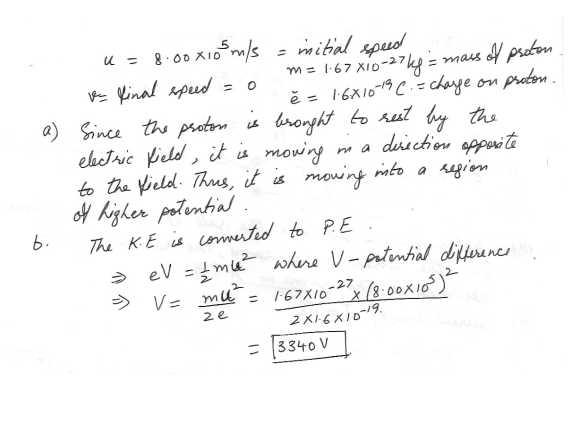 u = 8.00 X10⁵ m/s = initial speed
m = 1.67 X10⁻²⁷ kg = mass of proton
v = final speed = 0
ē = 1.6X10⁻¹⁹ C. = charge on proton.
a) Since the proton is brought to rest by the
electric field, it is moving in a direction opposite
to the field. Thus, it is moving into a region
of higher potential.
b. The K.E is converted to P.E.
⇒ eV = ½mu² where V - potential difference
⇒ V = mu²/2e = 1.67X10⁻²⁷ x (8.00x10⁵)²/2X1.6X10⁻¹⁹.
= 3340 V